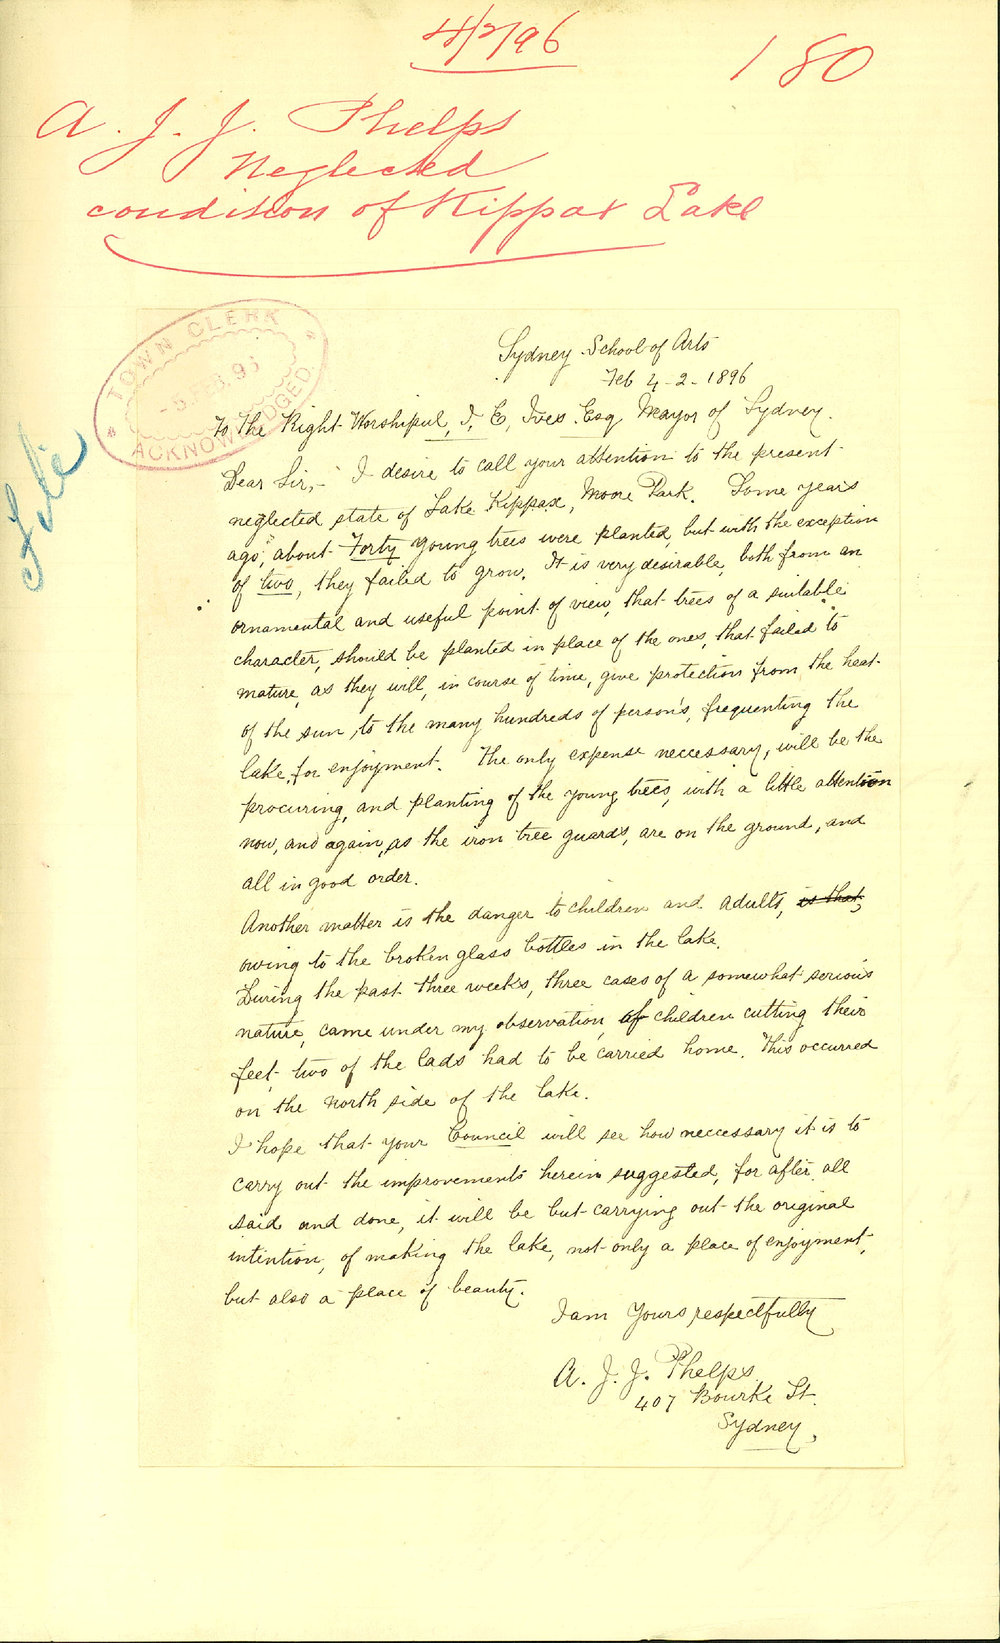 4/2/96
180
A. J. J. Phelps
Neglected
condition of Kippax Lake
TOWN CLERK
ACKNOWLEDGED
File
Sydney School of Arts
Feb 4-2-1896
To The Right Worshipul, I, E, Ives Esq Mayor of Sydney.
Dear Sir,- I desire to call your attention to the present
neglected state of Lake Kippax, Moore Park. Some years
ago, about Forty young trees were planted, but with the exception
of two, they failed to grow. It is very desirable, both from an
ornamental and useful point of view, that trees of a suitable
character, should be planted in place of the ones, that failed to
mature, as they will, in course of time, give protection from the heat
of the sun, to the many hundreds of person's, frequenting the
lake, for enjoyment. The only expense neccessary, will be the
procuring, and planting of the young trees, with a little attention
now, and again, as the iron tree guards, are on the ground, and
all in good order.
Another matter is the danger to children and adults, is that,
owing to the broken glass bottles in the lake.
During the past three weeks, three cases of a somewhat serious
nature, came under my observation, of children cutting their
feet, two of the lads had to be carried home. This occurred
on the North side of the lake.
I hope that your Council will see how neccessary it is to
carry out the improvements herein suggested, for after all
said and done, it will be but carrying out the original
intention, of making the lake, not only a place of enjoyment,
but also a place of beauty.
I am Yours respectfully
A. J. J. Phelps
407 Bourke St.
Sydney,